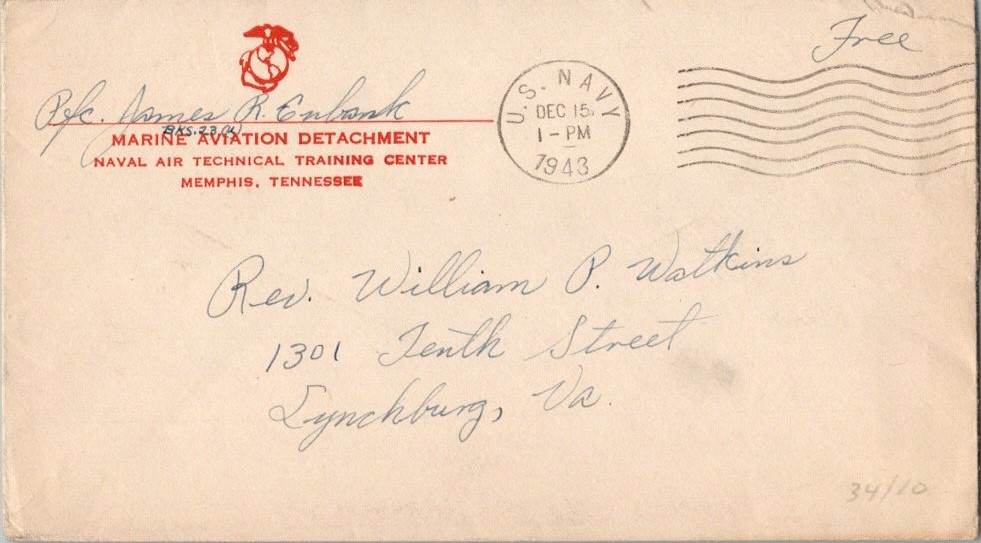 Free
Pfc. James R. Eubank
BKS. 23 (U)
MARINE AVIATION DETACHMENT
NAVAL AIR TECHNICAL TRAINING CENTER
MEMPHIS, TENNESSEE
U.S. NAVY
DEC 15
1 - PM
1943
Rev. William P. Watkins
1301 Tenth Street
Lynchburg, Va.
34/10